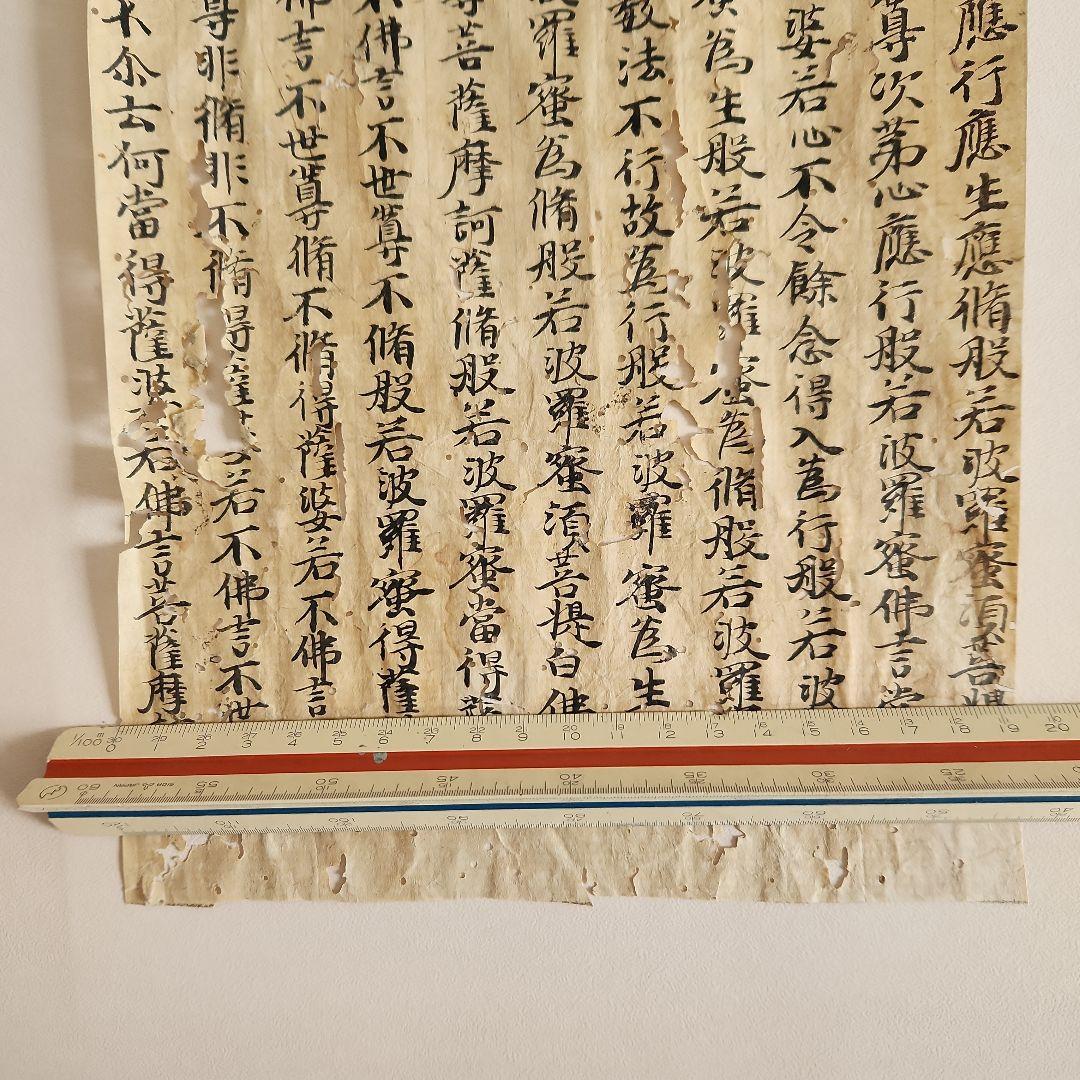 應行應生應脩般若波羅蜜須菩提
尊次第心應行般若波羅蜜佛言當
婆若心不令餘念得入為行般若波
為生般若波羅蜜為脩般若波羅
數法不行故為行般若波羅蜜為生
羅蜜為脩般若波羅蜜須菩提白佛
菩薩摩訶薩脩般若波羅蜜當得薩
佛言不世尊不脩般若波羅蜜得薩
佛言不世尊脩不脩得薩婆若不佛言
尊非脩非不脩得若不佛言不世
不尒云何當得薩婆若佛言菩薩摩
1/100 m 0 2 3 4 5 6 7 8 9 10 11 12 13 14 15 16 17 18 19 20
60 55 50 45 40 35 30 25